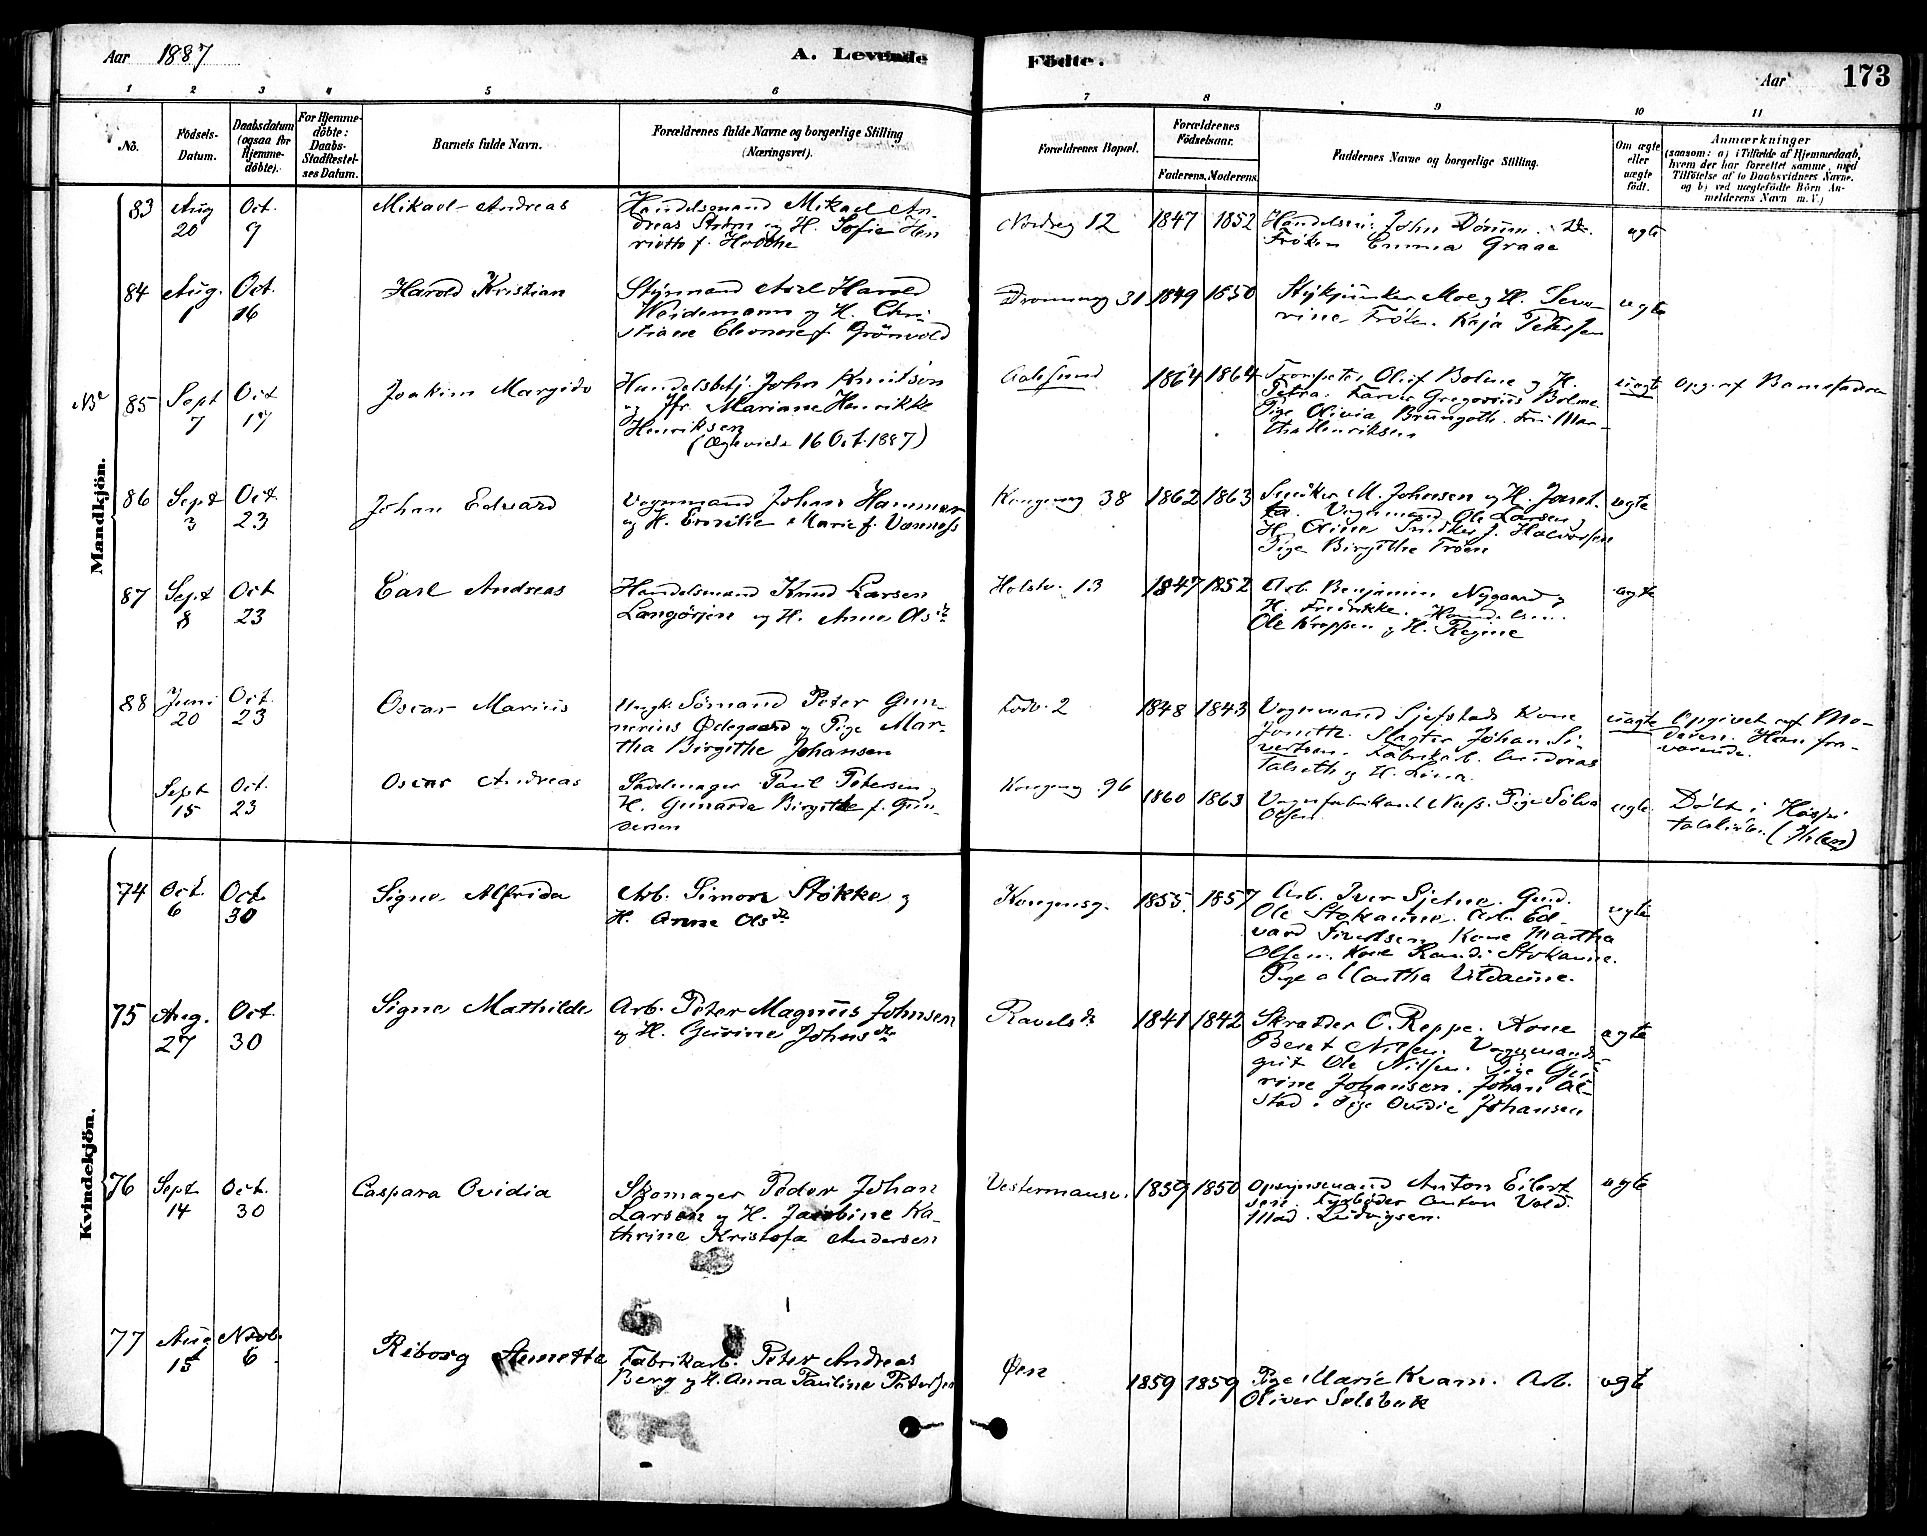 Aar 1887
A. Levende Födte.
Aar 173
1 2 3 4 5 6 7 8 9 10 11
No.
Födsels-Datum.
Daabsdatum (ogsaa for Hjemme-döbte).
For Hjemme-döbte: Daabs-Stadfæstel-ses Datum.
Barnets fulde Navn.
Forældrenes fulde Navne og borgerlige Stilling (Næringsvei).
Forældrenes Bopæl.
Forældrenes Födselsaar.
Faderens. Moderens.
Faddernes Navne og borgerlige Stilling.
Om ægte eller uægte födt.
Anmærkninger
(saasom: a) i Tilfælde af Hjemmedaab, hvem der har forrettet samme, med Tilföielse af to Daabsvidners Navne. og b) ved uægtefödte Börn Anmelderens Navn m.V.)
Mandkjön.
83 Aug 20 Oct. 9 Mikael Andreas
Handelsmand Mikael An-
dreas Ström og H. Sofie Hen
riette f.
Nordreg 12 1847 1852
John
Fröken Emma Graae
ægte
84 Aug. 1 Oct. 16 Harold Kristian
Styrmand Axel Harold
Weidemann og H. Chri-
stiane Eleonore f. Grönvold
Dronningg 31 1849 1850
Stykjunker Moe og H. Seve-
rine Fröken Kaja Petersen
ægte
NB 85 Sept 7 Oct 17 Joakim Margido
Handelsbetj. John Knutson
og Jfr. Mariane Henrikke
Henriksen
(Ægteviede 16 Oct. 1887)
Aalesund 1864 1864
Trompeter Oluf Bolme og H.
Petra. Farver Gregorius Bolme
Pige Olivia Brungoth. Mar-
tha Henriksen
uægte Opg. af Barnefaderen
86 Sept 3 Oct 23 Johan Edvard
Vognmand Johan Hammer
og H. Emilie Marie f. Vanness
Kongensg 38 1862 1863
Snedker M. Johnsen og H.
Vognmand Ole Larsen og
H. Oline Snedker J. Halvorsen
Pige Birgithe
ægte
87 Sept 8 Oct 23 Carl Andreas
Handelsmand Knud Larsen
Langörjen og H. Anne Olsdt.
Holstv. 13 1847 1852
Arb. Benjamin Nygaard og
H. Fredrikke.
Ole Kroppen og H. Regine
ægte
88 Juni 20 Oct. 23 Oscar Marius
Ungk. Sömand Peter Gun-
nerius Ødegaard og Pige Mar-
tha Birgithe Johansen
2 1848 1843
Vognmand Sjefstad Kone
Slagter Johan Si-
vertsen. Fabrikarb. Andreas
Talseth og H. Lina.
uægte Opgivet af Mo-
deren. Han fra-
værende.
Sept 15 Oct. 23 Oscar Andreas
Sadelmager Paul Petersen og
H. Gunarda Birgitte f. Gun-
dersen
Kongensg 96 1860 1863
Vognfabrikant Nuss. Pige Sölva
Olsen
ægte Döbt i Hospi-
talskirken (Ihlen)
Kvindekjön.
74 Oct. 6 Oct. 30 Signe Alfrida
Arb. Simon Stokke og
H. Anne Olsdt.
Kongensg. 1855. 1857
Arb. Iver Sjetne. Gmd.
Ole Stokaune. Arb. Ed-
vard Sivertsen Kone Martha
Olsen. Kone Randi Stokaune.
Pige Martha Utvaune.
ægte
75 Aug. 27 Oct. 30 Signe Mathilde
Arb. Peter Magnus Johnsen
og H. Gurine Johnsdt.
Ravelsv. 1841 1842
Skrædder O. Reppe. Kone
Beret Nilsen. Vognmands-
gut Ole Nilsen. Pige Gu-
rine Johansen. Johan Al-
stad. Pige Ovidie Johansen
ægte
76 Sept 14 Oct. 30 Caspara Ovidia
Skomager Peder Johan
Larsen og H. Jacobine Ka-
thrine Kristofa Andersen
Vestermansv. 1859 1850
Opsynsmand Anton Eilert
sen. Fyrböder Anton Vold.
Mad. Ludvigsen.
ægte
77 Aug 15 Novb. 6 Riborg Annette
Fabrikarb. Peter Andreas
Berg og H. Anna Pauline Petersen
Øen 1859 1859
Pige Marie Kvam. Arb.
Oliver Solsbak
ægte